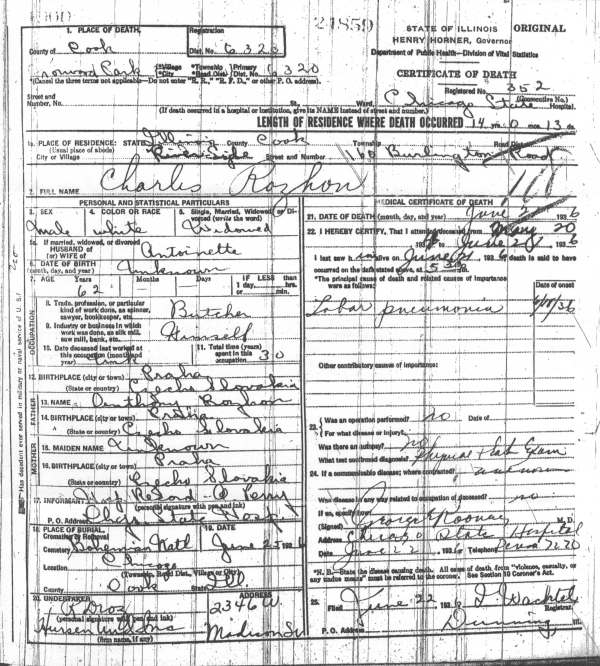 1. PLACE OF DEATH.
County of Cook
Registration
Dist. No. 6320
24859
STATE OF ILLINOIS
HENRY HORNER, Governor
Department of Public Health—Division of Vital Statistics
ORIGINAL
*Village
*City
*Township
*Road Dist.
Primary
Dist. No. 6320
*(Cancel the three terms not applicable—Do not enter "R. R.," "R. F. D.," or other P. O. address.)
CERTIFICATE OF DEATH
Registered No. 352
(Consecutive No.)
Street and
Number, No.
St., Ward, Chicago State Hospital.
(If death occurred in a hospital or institution, give its NAME instead of street and number.)
LENGTH OF RESIDENCE WHERE DEATH OCCURRED 14 yrs. 0 mos. 13 ds.
1a. PLACE OF RESIDENCE: STATE Illinois County Cook Township Road Dist.
(Usual place of abode)
City or Village Riverside Street and Number 160 Burlington Road
2. FULL NAME Charles Rozhon
PERSONAL AND STATISTICAL PARTICULARS
3. SEX
male
4. COLOR OR RACE
white
5. Single, Married, Widowed or Divorced (write the word)
Widowed
5a. If married, widowed, or divorced
HUSBAND of
(or) WIFE of Antoinette
6. DATE OF BIRTH
(month, day, and year) Unknown
7. AGE Years Months Days
62
IF LESS than
1 day, hrs.
or min.
OCCUPATION
8. Trade, profession, or particular
kind of work done, as spinner,
sawyer, bookkeeper, etc. Butcher
9. Industry or business in which
work was done, as silk mill,
saw mill, bank, etc. Himself
10. Date deceased last worked at
this occupation (month and
year) unk
11. Total time (years)
spent in this
occupation 30
12. BIRTHPLACE (city or town) Praha
(State or country) Czecho Slovakia
FATHER
13. NAME Anthony Rozhon
14. BIRTHPLACE (city or town) Praha
(State or country) Czecho Slovakia
MOTHER
15. MAIDEN NAME Unknown
16. BIRTHPLACE (city or town) Praha
(State or country) Czecho Slovakia
17. INFORMANT Hosp Record
(personal signature with pen and ink)
P. O. Address Chgo State Hosp
18. PLACE OF BURIAL
Cremation or Removal
Cemetery Bohemian Natl
19. DATE
June 25 1936
Location Chicago
(Township, Road Dist., Village or City)
Cook State Ill.
20. UNDERTAKER
(personal signature with pen and ink)
(firm name, if any)
ADDRESS
2346 W
Madison St
MEDICAL CERTIFICATE OF DEATH
21. DATE OF DEATH (month, day, and year) June 1936
22. I HEREBY CERTIFY, That I attended deceased from May 20
June 1936
I last saw him alive on June 21 1936 death is said to have
occurred on the date stated above, at
*The principal cause of death and related causes of importance
were as follows:
Date of onset
Lobar pneumonia
Other contributory causes of importance:
23. Was an operation performed? no Date of
For what disease or injury?
Was there an autopsy? no
What test confirmed diagnosis? Physical
24. If a communicable disease; where contracted? unknown
Was disease in any way related to occupation of deceased? no
If so, specify how:
(Signed) George Rooney M. D.
Address Chicago State Hospital
Date June 22 1936 Telephone
*N. B.—State the disease causing death. All cases of death from "violence, casualty, or
any undue means" must be referred to the coroner. See Section 10 Coroner's Act.
25. Filed June 22 1936 Wachtel
Registrar.
P. O. Address Dunning